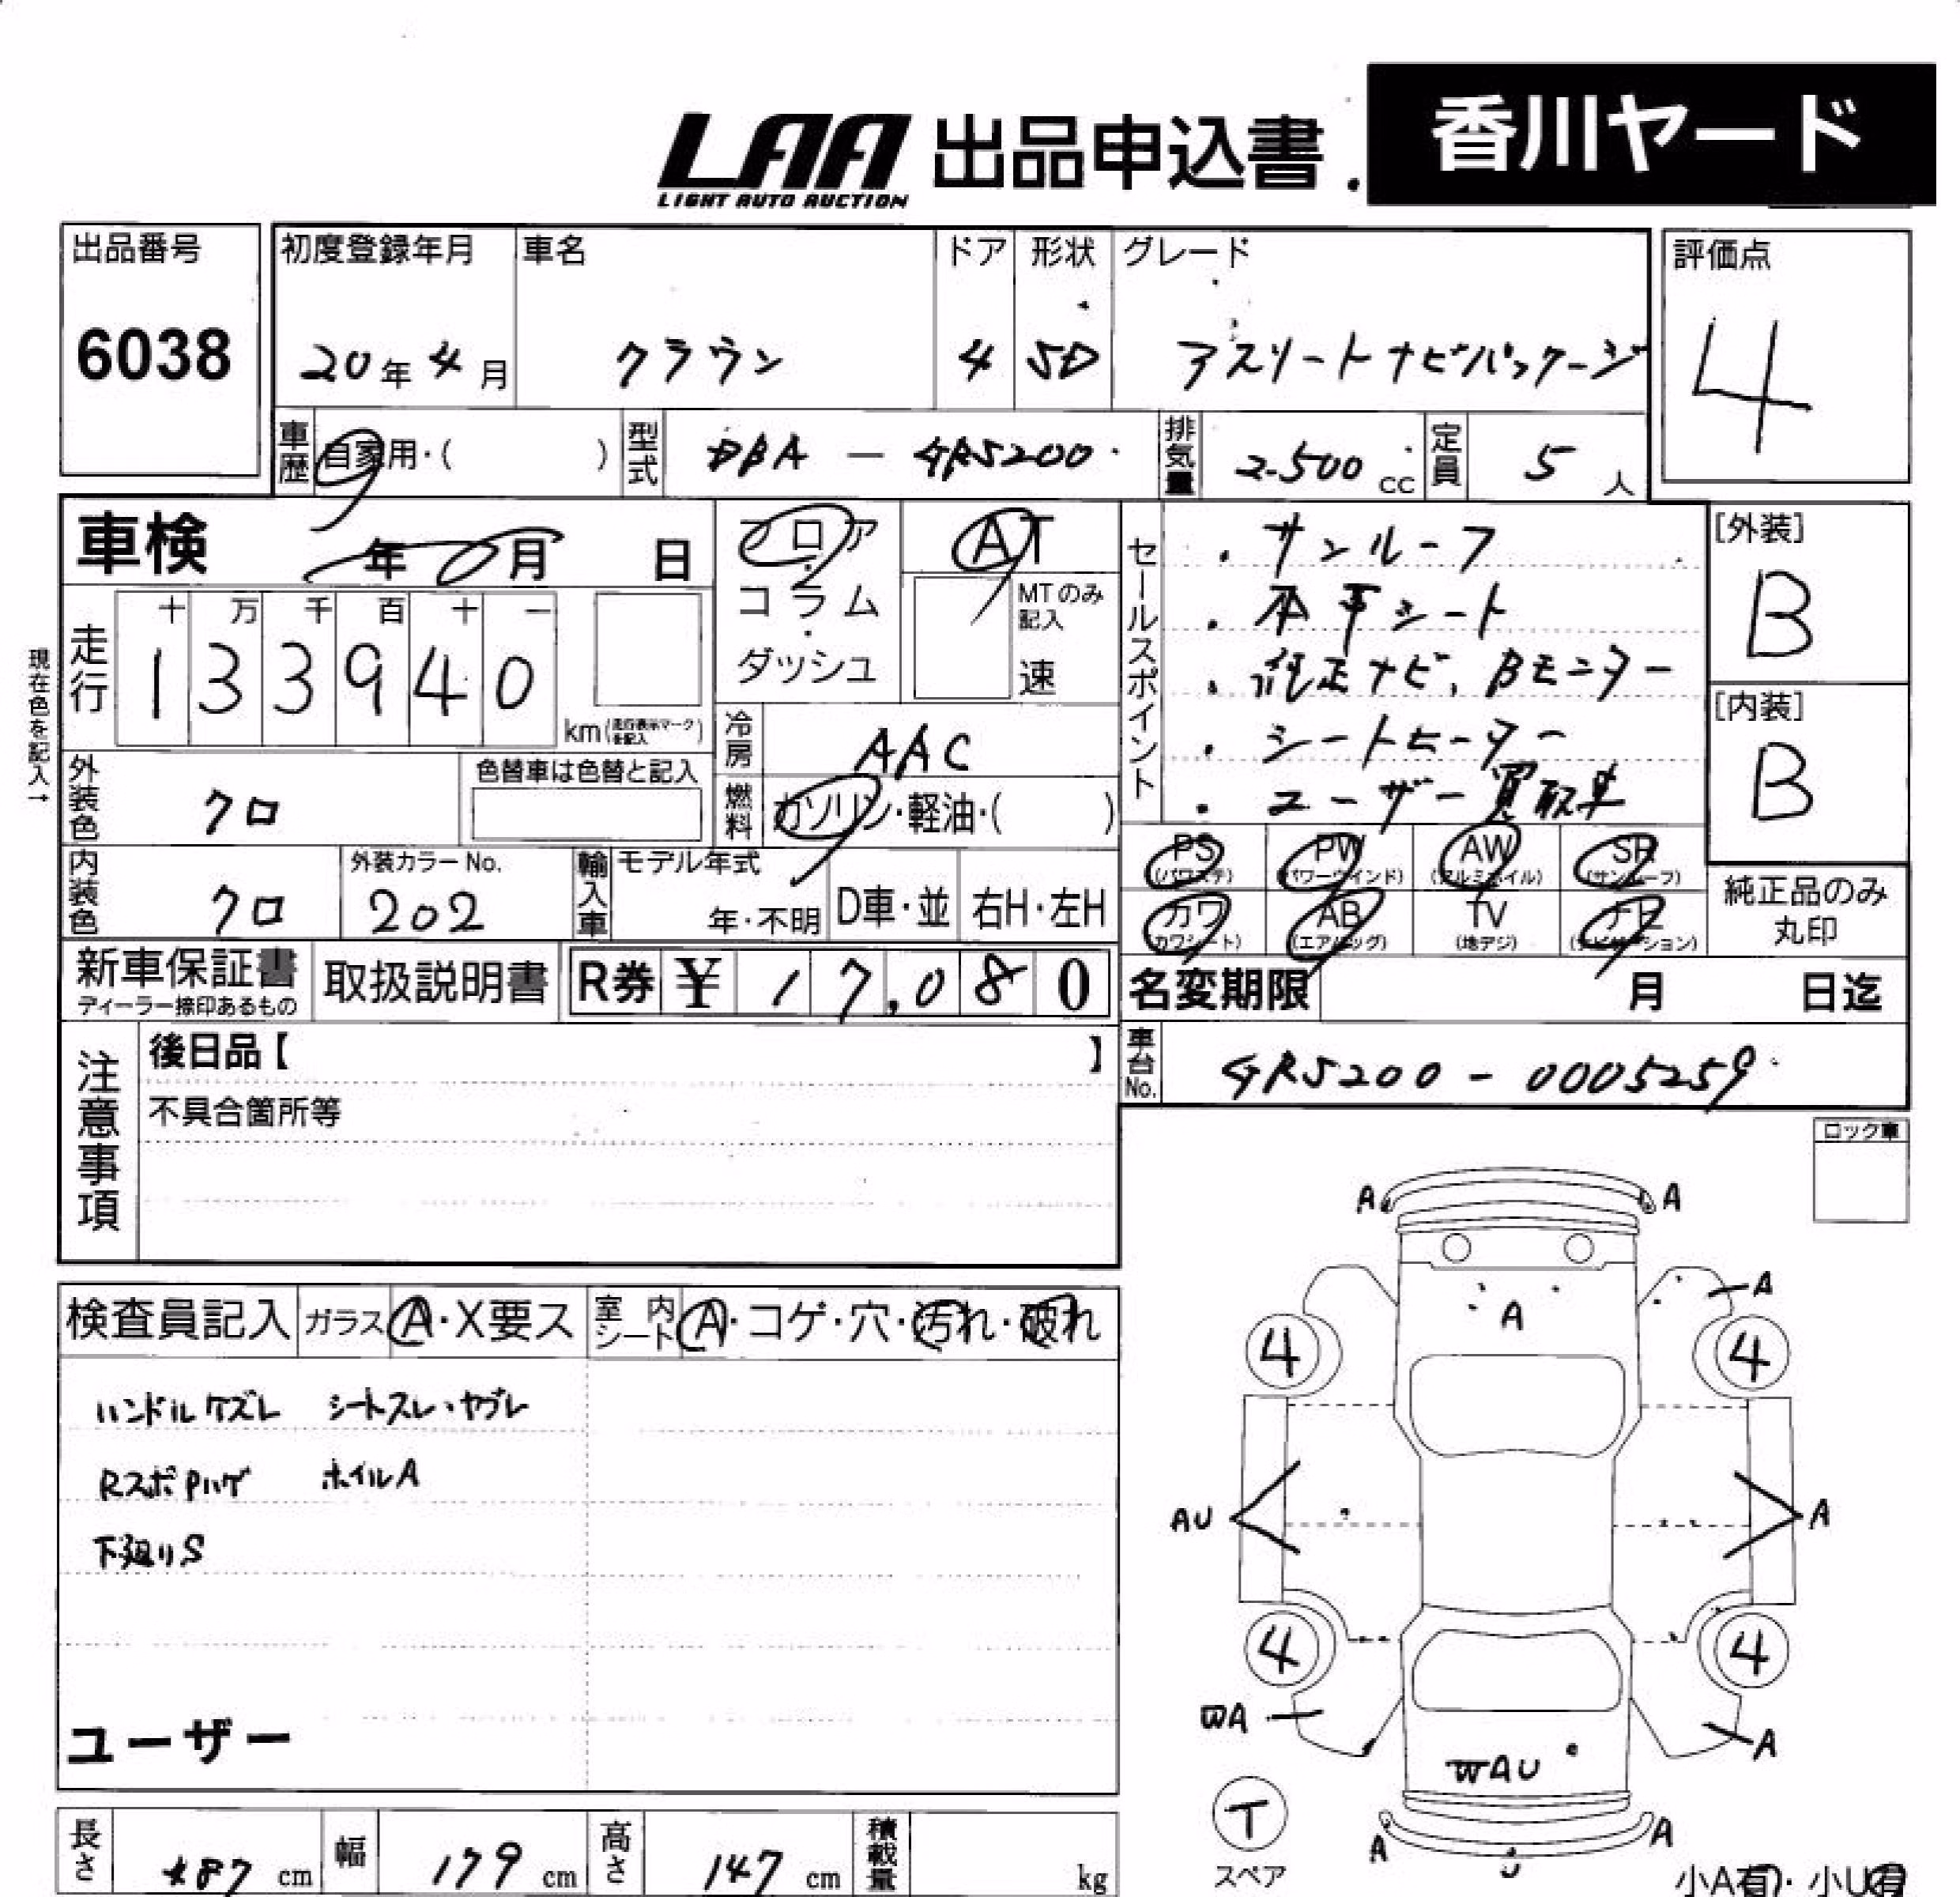 LAA 出品申込書 香川ヤード
LIGHT AUTO AUCTION
出品番号 初度登録年月 車名 ドア 形状 グレード 評価点
6038 20年4月 クラウン 4 SD アスリートナビパッケージ 4
車歴 自家用・( ) 型式 DBA - GRS200 排気量 2500cc 定員 5人
車検 年 月 日
フロア・コラム・ダッシュ
AT
MTのみ記入 速
セールスポイント
・サンルーフ
・本革シート
・純正ナビ、Bモニター
・シートヒーター
・ユーザー買取車
[外装] B
[内装] B
現在色を記入→
走行 十 万 千 百 十 一
133940 km(走行表示マークを記入)
冷房 AAC
外装色 クロ 色替車は色替と記入
燃料 ガソリン・軽油・( )
内装色 クロ 外装カラーNo. 202
輸入車 モデル年式 年・不明 D車・並 右H・左H
PS (パワステ) PW (パワーウインド) AW (アルミホイル) SR (サンルーフ)
カワ (カワシート) AB (エアバッグ) TV (地デジ) ナビ (ナビゲーション)
純正品のみ丸印
新車保証書 ディーラー捺印あるもの 取扱説明書 R券 ¥17,080
名変期限 月 日迄
注意事項
後日品【 】
不具合箇所等
車台No. GRS200 - 0005259
ロック車
検査員記入 ガラス A・X要ス 室内シート A・コゲ・穴・汚れ・破れ
ハンドルケズレ シートスレ・ヤブレ
RスポPハゲ ホイルA
下廻りS
ユーザー
A A
A
A
4 4
AU A
4 4
WA A
WAU
T
スペア
A A
U
小A有・小U有
長さ 487 cm 幅 179 cm 高さ 147 cm 積載量 kg